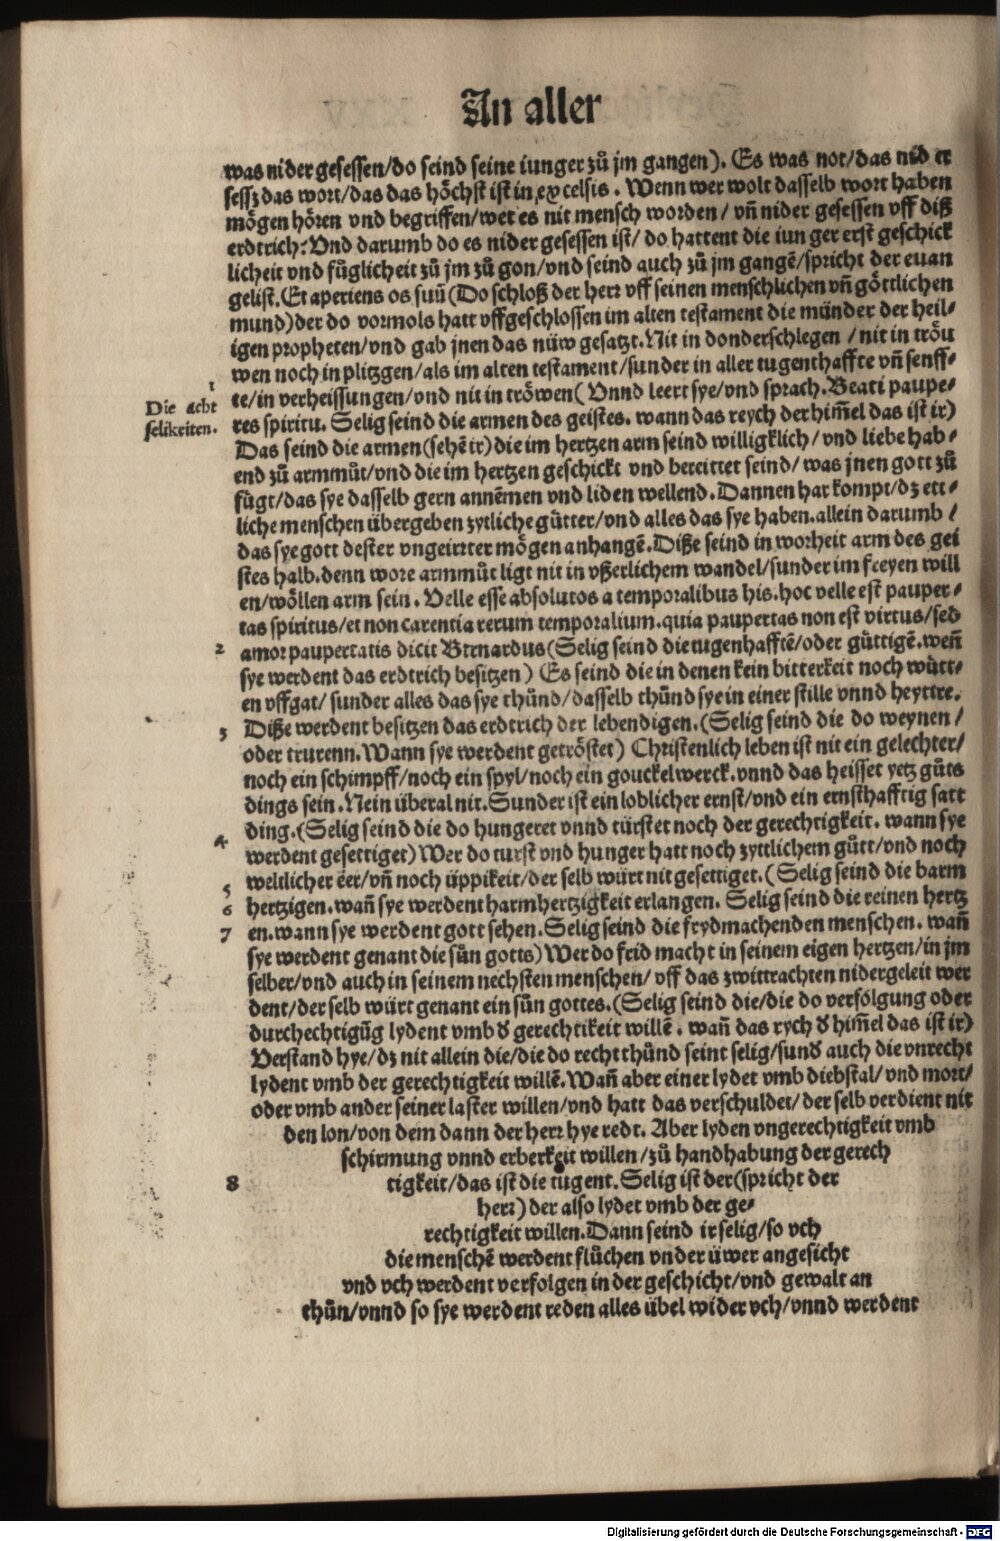 An aller
was nider gesessen/do seind seine iunger zů jm gangen). Es was not/das nid er
sessz das wort/das das höchst ist in excelsis. Wenn wer wolt dasselb wort haben
mögen hören vnd begriffen/wet es nit mensch worden/ vñ nider gesessen vff diß
erdtrich: Vnd darumb do es nider gesessen ist/ do hattent die iun ger erst geschick
licheit vnd fůglicheit zů jm zů gon/vnd seind auch zů jm gangẽ/spricht der euan
gelist. Et aperiens os suũ (Do schloß der herr vff seinen menschlichen vñ göttlichen
mund)der do vormols hatt vffgeschlossen im alten testament die münder der heil⸗
igen propheten/vnd gab jnen das nüw gesatzt. Nit in donderschlegen / nit in tröu
wen noch in plitzgen/als im alten testament/sunder in aller tugenthaffte vñ senff⸗
1
te/in verheissungen/vnd nit in tröwen( Vnnd leert sye/vnd sprach. Beati paupe⸗
Die acht
res spiritu. Selig seind die armen des geistes. wann das reych der him̃el das ist ir)
selikeiten.
Das seind die armen(sehẽ ir)die im hertzen arm seind willigklich/ vnd liebe hab⸗
end zů armmůt/vnd die im hertzen geschickt vnd bereittet seind/ was jnen gott zů
fůgt/das sye dasselb gern annẽmen vnd liden wellend. Dannen har kompt/dz ett⸗
liche menschen übergeben zytliche gůtter/vnd alles das sye haben. allein darumb /
das sye gott dester vngeirrter mögen anhangẽ. Diße seind in worheit arm des gei
stes halb. denn wore armmůt ligt nit in vßerlichem wandel/sunder im freyen will
en/wöllen arm sein. Velle esse absolutos a temporalibus his. hoc velle est pauper⸗
tas spiritus/et non carentia rerum temporalium. quia paupertas non est virtus/sed
2 amor paupertatis dicit Bernardus (Selig seind die tugenhafftẽ/oder güttigẽ. weñ
sye werdent das erdtrich besitzen) Es seind die in denen kein bitterkeit noch wůtt⸗
en vffgat/ sunder alles das sye thůnd/dasselb thůnd sye in einer stille vnnd heyttre.
3 Diße werdent besitzen das erdtrich der lebendigen. (Selig seind die do weynen /
oder trurenn. Wann sye werdent getröstet) Christenlich leben ist nit ein gelechter/
noch ein schimpff/noch ein spyl/noch ein gouckelwerck. vnnd das heisset yetz gůts
dings sein. Nein überal nit. Sunder ist ein loblicher ernst/vnd ein ernsthafftig satt
4 ding. (Selig seind die do hungeret vnnd türstet noch der gerechtigkeit. wann sye
werdent gesettiget) Wer do turst vnd hunger hatt noch zyttlichem gůtt/vnd noch
5 weltlicher eer/vñ noch üppikeit/der selb würt nit gesettiget. (Selig seind die barm
6 hertzigen. wañ sye werdent barmhertzigkeit erlangen. Selig seind die reinen hertz
7 en. wann sye werdent gott sehen. Selig seind die frydmachenden menschen. wañ
sye werdent genant die sün gotts) Wer do frid macht in seinem eigen hertzen/in jm
selber/vnd auch in seinem nechsten menschen/ vff das zwittrachten nidergeleit wer
dent/der selb würt genant ein sün gottes. (Selig seind die/die do verfölgung oder
durchechtigũg lydent vmb d̕ gerechtikeit willẽ. wañ das rych d̕ him̃el das ist ir)
Verstand hye/dz nit allein die/die do recht thůnd seint selig/sund̕ auch die vnrecht
lydent vmb der gerechtigkeit willẽ. Wañ aber einer lydet vmb diebstal/vnd mort/
oder vmb ander seiner laster willen/vnd hatt das verschuldet/der selb verdient nit
den lon/von dem dann der herr hye redt. Aber lyden vngerechtigkeit vmb
schirmung vnnd erberkeit willen/zů handhabung der gerech
8 tigkeit/das ist die tugent. Selig ist der(spricht der
herr) der also lydet vmb der ge⸗
rechtigkeit willen. Dann seind ir selig/so vch
die menschẽ werdent flůchen vnder üwer angesicht
vnd vch werdent verfolgen in der geschicht/vnd gewalt an
thůn/vnnd so sye werdent reden alles übel wider vch/vnnd werdent
Digitalisierung gefördert durch die Deutsche Forschungsgemeinschaft - DFG